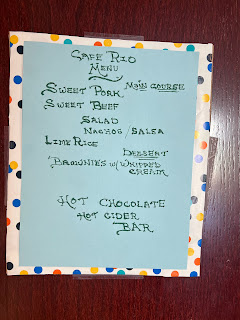 CAFE RIO
MENU
MAIN COURSE
SWEET PORK
SWEET BEEF
SALAD
NACHOS/SALSA
LIME RICE
DESSERT
BROWNIES W/ WHIPPED
CREAM
HOT CHOCOLATE
HOT CIDER
BAR